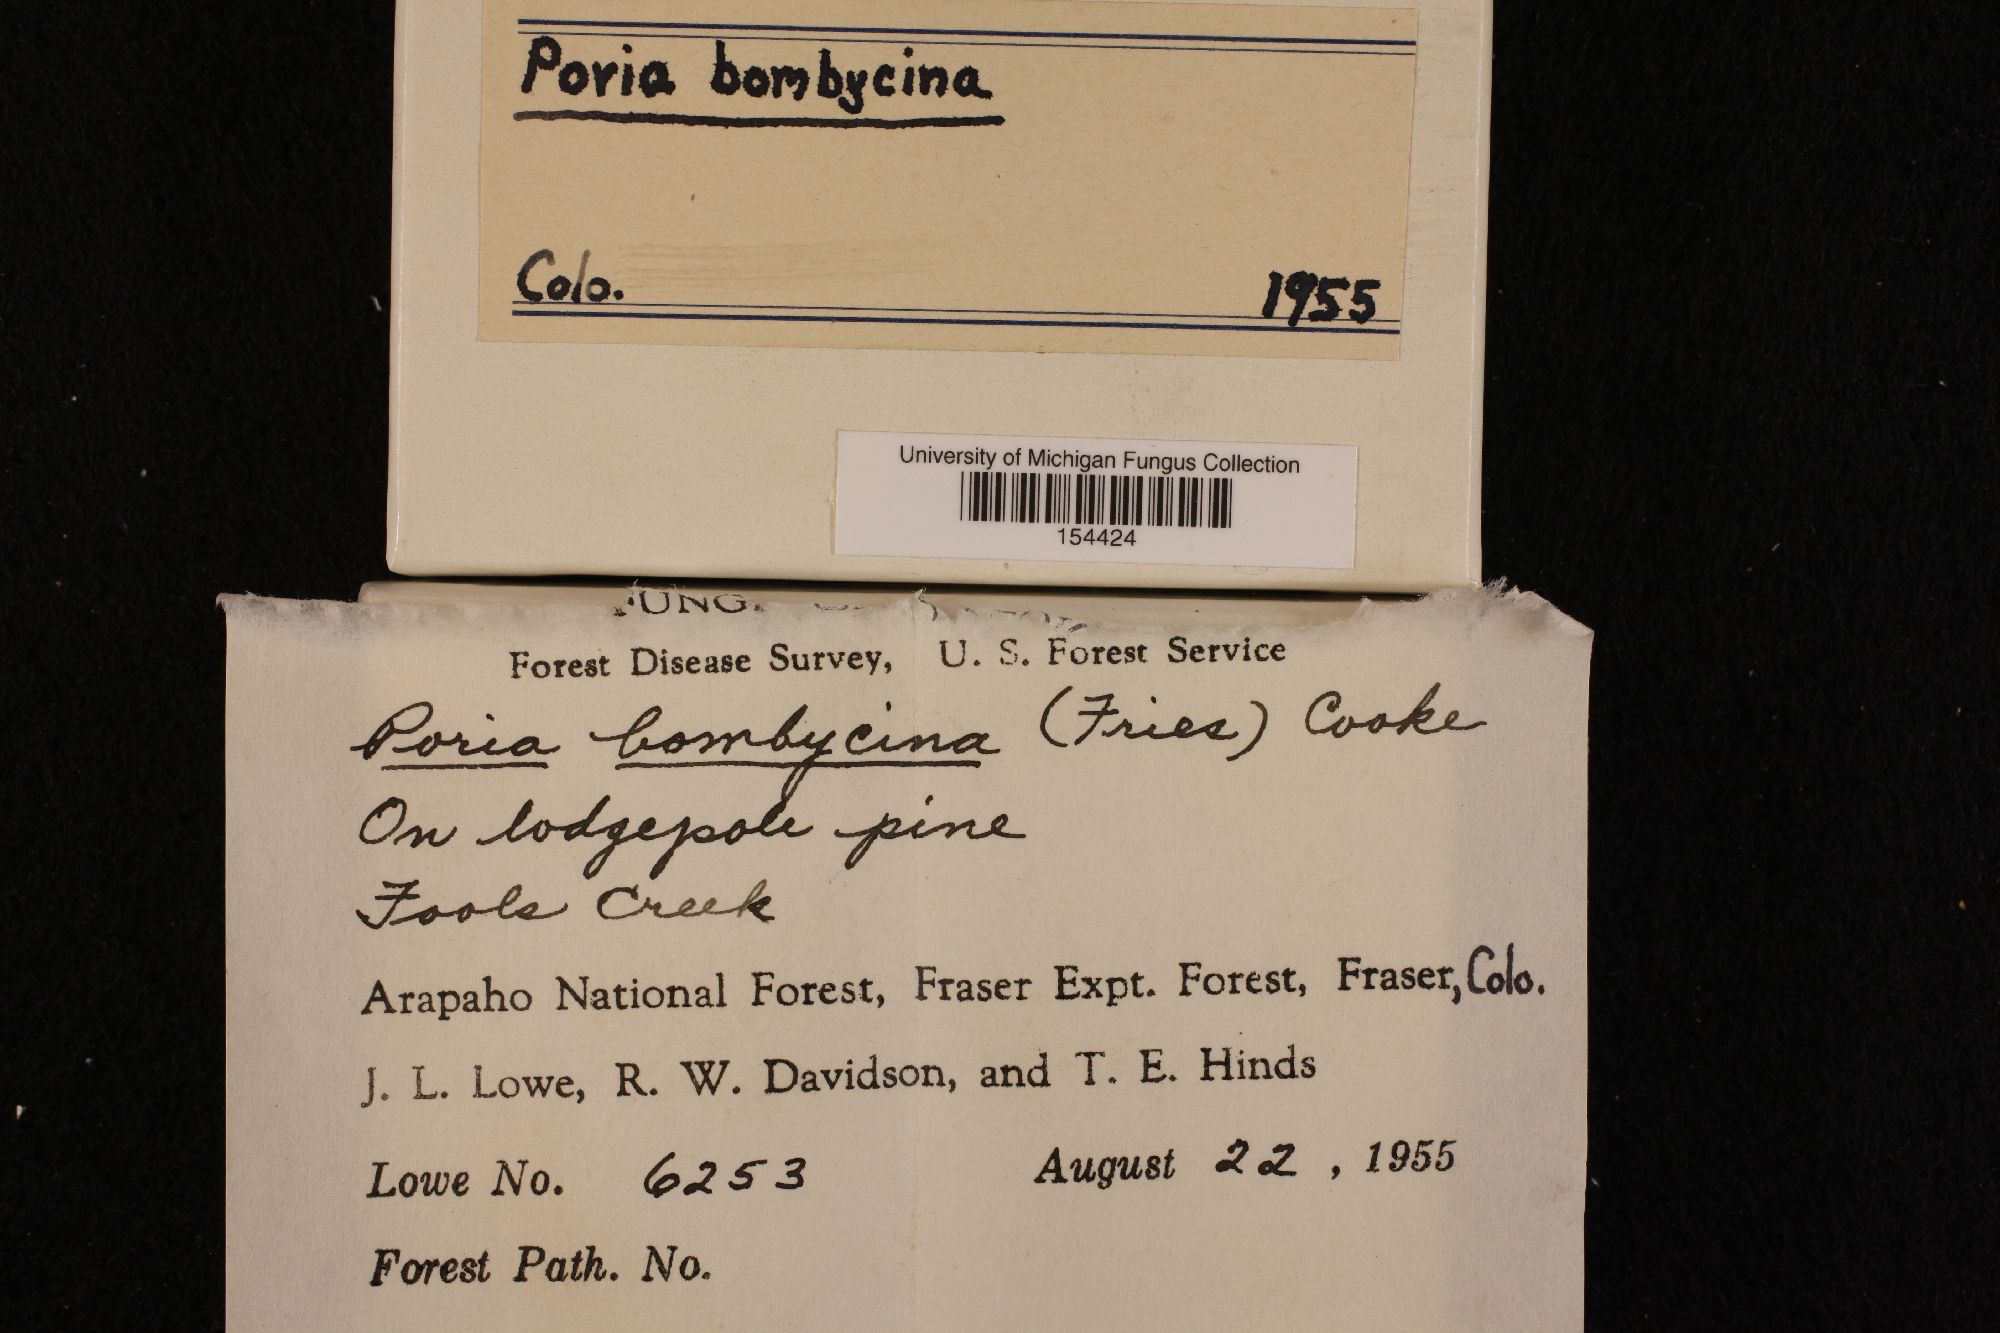 Poria bombycina
Colo. 1955
University of Michigan Fungus Collection
154424
Forest Disease Survey, U. S. Forest Service
Poria bombycina (Fries) Cooke
On lodgepole pine
Fools Creek
Arapaho National Forest, Fraser Expt. Forest, Fraser, Colo.
J. L. Lowe, R. W. Davidson, and T. E. Hinds
Lowe No. 6253 August 22, 1955
Forest Path. No.